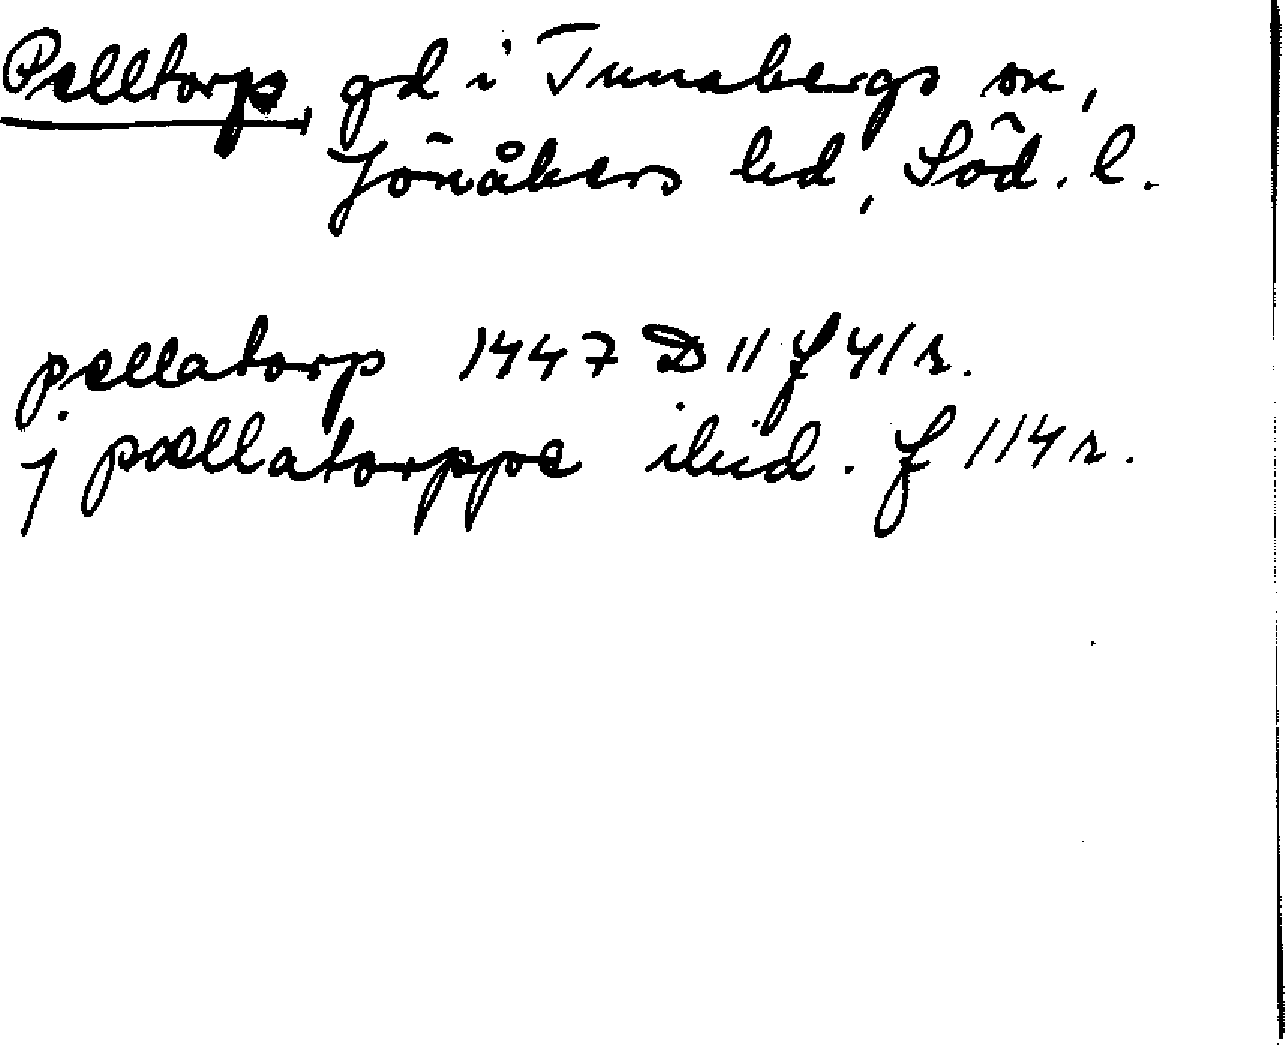 Pelltorp, gd i Tunabergs sn,
Jönåkers hd, Söd. l.
pellatorp 1447 D 11 f 41 r.
j pællatorppe ibid. f 114 r.